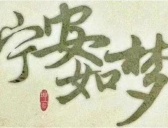 宁安如梦